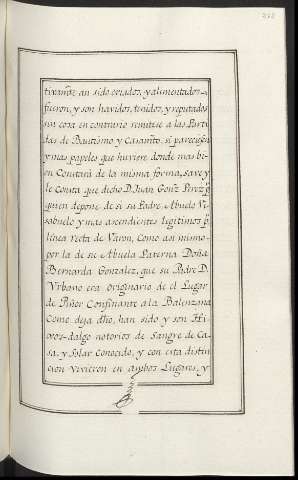 tivamte. an sido criados, y alimentados
fueron, y son havidos, tenidos, y reputados
sin cosa en contrario remitese a las Parti
das de Bautismo y Casamto. si parecieren
y mas papeles que huviere donde mas bi-
en Constará de la misma forma, save y
le Consta que dicho D. Juan Gonz. Perez p.
quien depone de si su Padre Abuelo Vi-
sabuelo y mas ascendientes legitimos p.
linea recta de Varon, Como asi mismo
por la de su Abuela Paterna Doña
Bernarda Gonzalez, que su Padre D.
Vrbano era originario de el Lugar
de Riñor Confinante a la
Como deja dho, han sido y son Hi-
xos-dalgo notorios de Sangre de Ca-
sa, y Solar Conocido, y con esta distin
cion vivieron en ambos Lugares, y